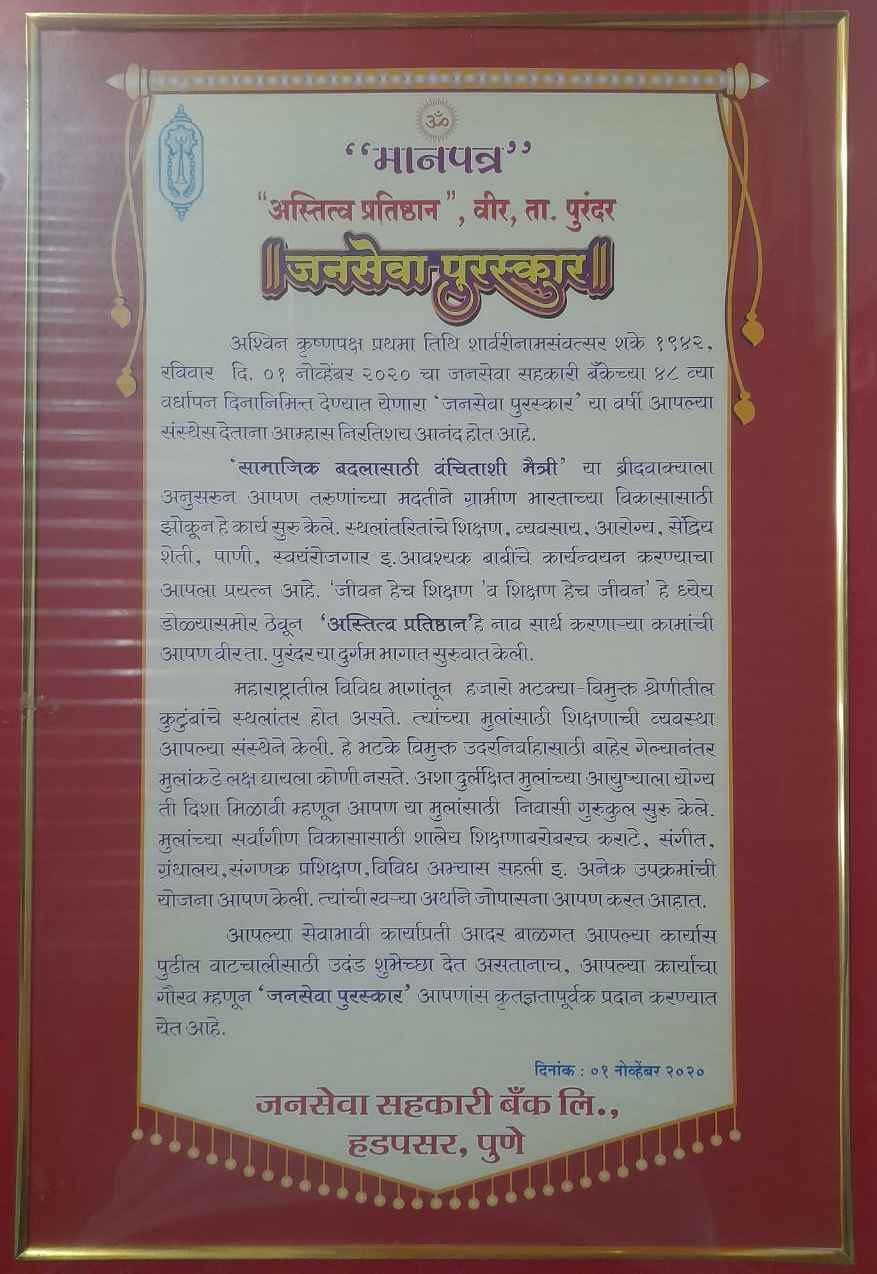 ॐ
“मानपत्र”
“अस्तित्व प्रतिष्ठान”, वीर, ता. पुरंदर
॥जनसेवा-पुरस्कार॥
अश्विन कृष्णपक्ष प्रथमा तिथि शार्वरीनामसंवत्सर शके १९४२,
रविवार दि. ०१ नोव्हेंबर २०२० चा जनसेवा सहकारी बँकेच्या ४८ व्या
वर्धापन दिनानिमित्त देण्यात येणारा ‘जनसेवा पुरस्कार’ या वर्षी आपल्या
संस्थेस देताना आम्हास निरतिशय आनंद होत आहे.
‘सामाजिक बदलासाठी वंचिताशी मैत्री’ या ब्रीदवाक्याला
अनुसरुन आपण तरुणांच्या मदतीने ग्रामीण भारताच्या विकासासाठी
झोकून हे कार्य सुरु केले. स्थलांतरितांचे शिक्षण, व्यवसाय, आरोग्य, सेंद्रिय
शेती, पाणी, स्वयंरोजगार इ. आवश्यक बाबींचे कार्यन्वयन करण्याचा
आपला प्रयत्न आहे. ‘जीवन हेच शिक्षण ’व शिक्षण हेच जीवन’ हे ध्येय
डोळ्यासमोर ठेवून ‘अस्तित्व प्रतिष्ठान’हे नाव सार्थ करणाऱ्या कामांची
आपण वीर ता. पुरंदर या दुर्गम भागात सुरुवात केली.
महाराष्ट्रातील विविध भागांतून हजारो भटक्या-विमुक्त श्रेणीतील
कुटुंबांचे स्थलांतर होत असते. त्यांच्या मुलांसाठी शिक्षणाची व्यवस्था
आपल्या संस्थेने केली. हे भटके विमुक्त उदरनिर्वाहासाठी बाहेर गेल्यानंतर
मुलांकडे लक्ष द्यायला कोणी नसते. अशा दुर्लक्षित मुलांच्या आयुष्याला योग्य
ती दिशा मिळावी म्हणून आपण या मुलांसाठी निवासी गुरुकुल सुरु केले.
मुलांच्या सर्वांगीण विकासासाठी शालेय शिक्षणाबरोबरच कराटे, संगीत,
ग्रंथालय,संगणक प्रशिक्षण,विविध अभ्यास सहली इ. अनेक उपक्रमांची
योजना आपण केली. त्यांची खऱ्या अर्थाने जोपासना आपण करत आहात.
आपल्या सेवाभावी कार्याप्रती आदर बाळगत आपल्या कार्यास
पुढील वाटचालीसाठी उदंड शुभेच्छा देत असतानाच, आपल्या कार्याचा
गौरव म्हणून ‘जनसेवा पुरस्कार’ आपणांस कृतज्ञतापूर्वक प्रदान करण्यात
येत आहे.
दिनांक : ०१ नोव्हेंबर २०२०
जनसेवा सहकारी बँक लि.,
हडपसर, पुणे